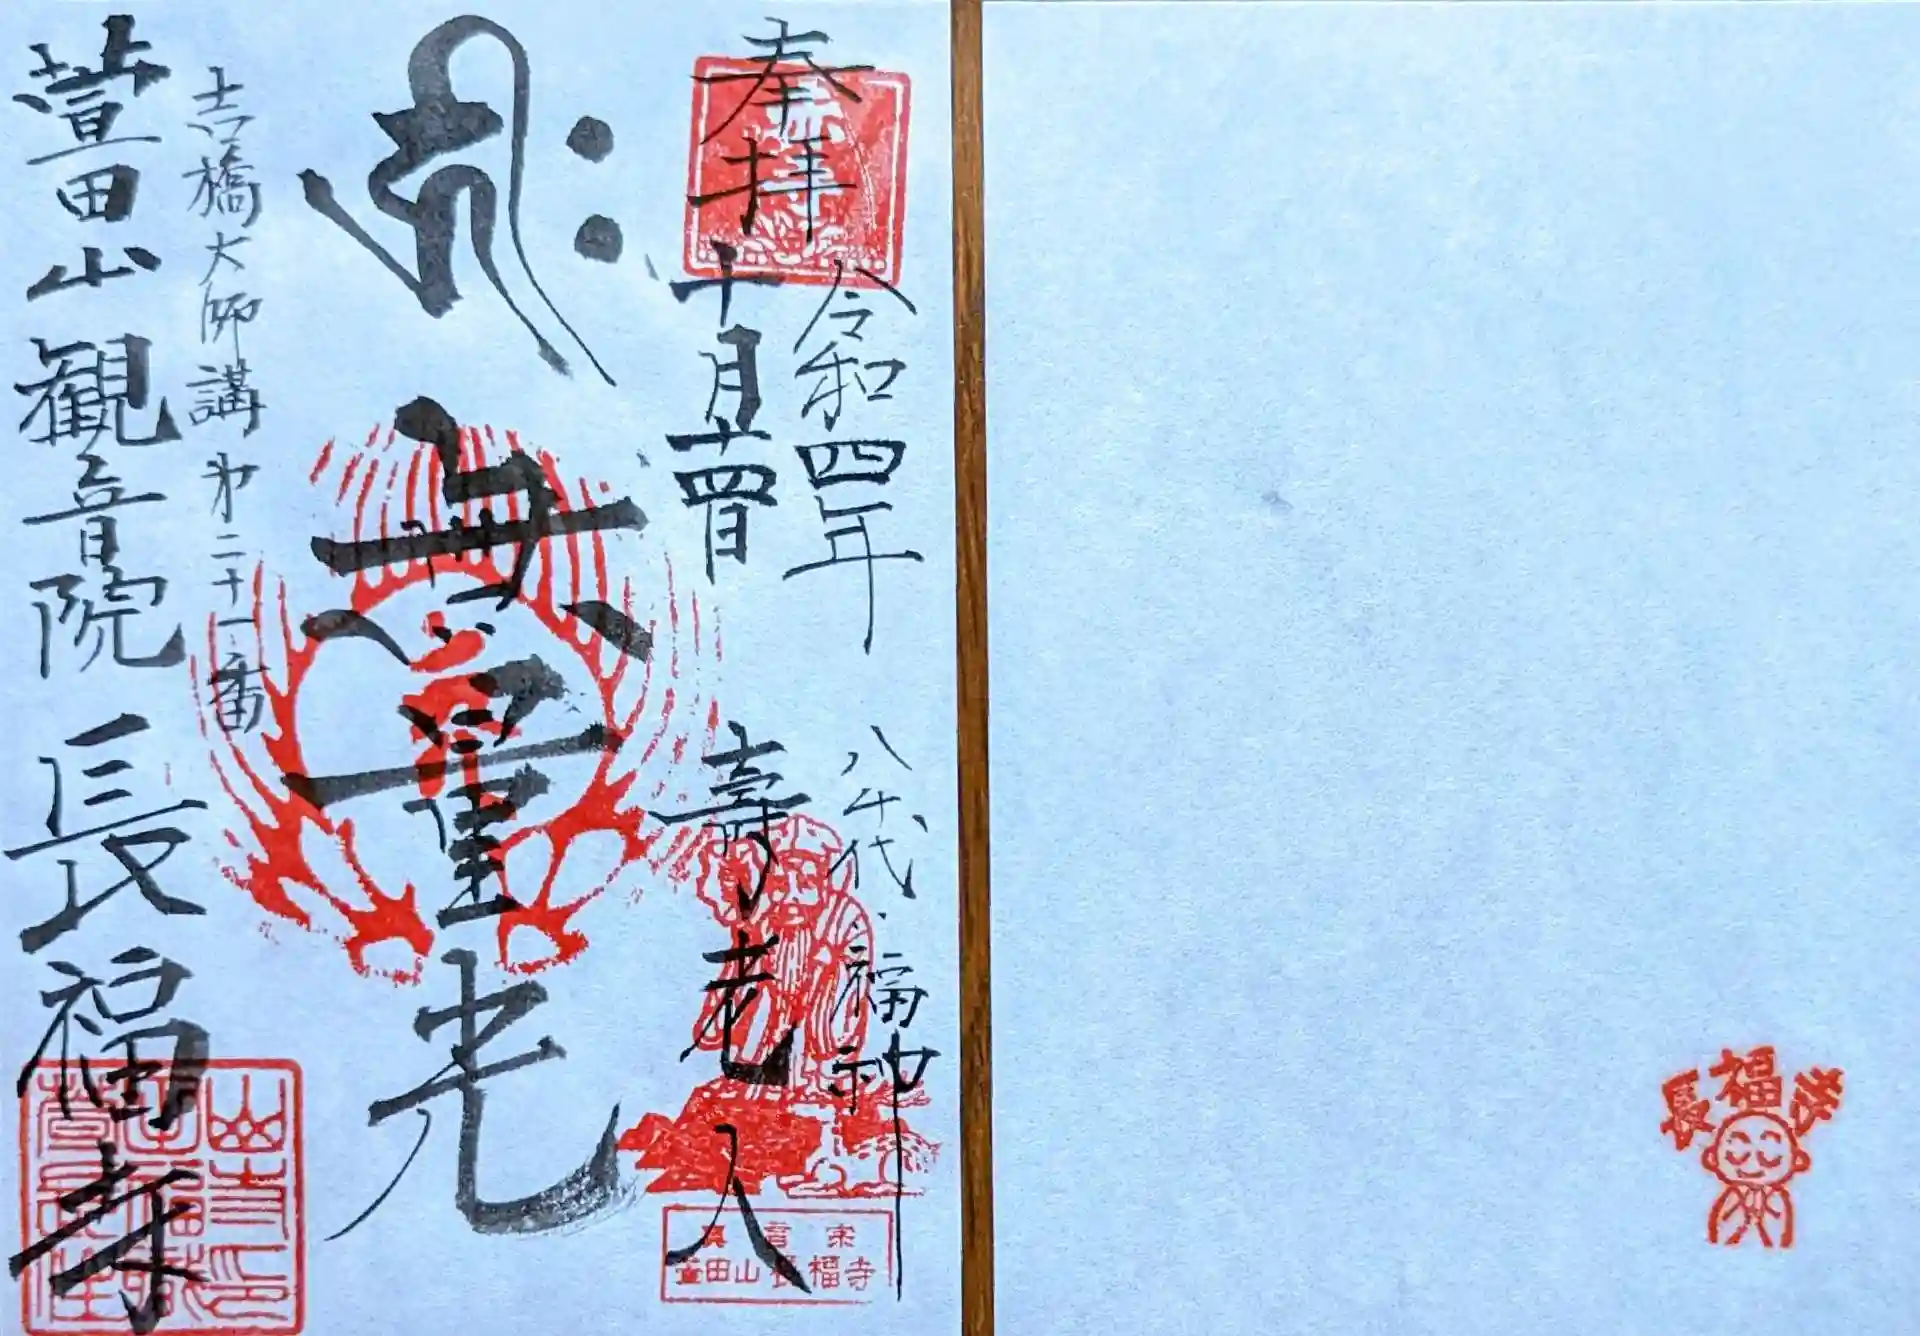 奉拝
令和四年
十月廿四日
八千代・福神
壽老人
無量光
吉橋大師講 㐧二十一番
萱田山 観音院 長福寺
真言宗
萱田山長福寺
長福寺